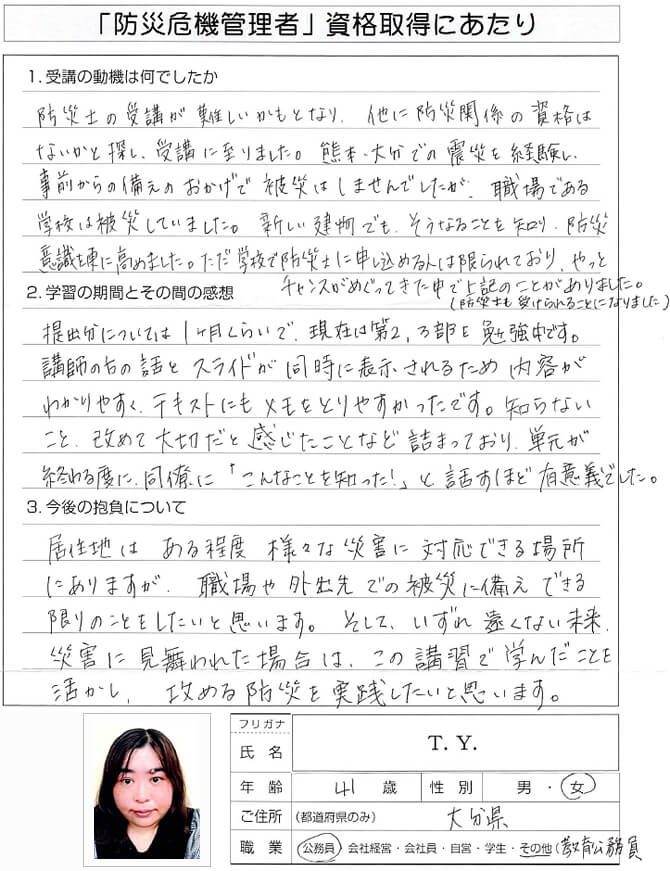 「防災危機管理者」資格取得にあたり
1.受講の動機は何でしたか
防災士の受講が難しいかもとなり、他に防災関係の資格は
ないかと探し、受講に至りました。熊本・大分での震災を経験し、
事前からの備えのおかげで被災はしませんでしたが、職場である
学校は被災していました。新しい建物でも、そうなることを知り、防災
意識を更に高めました。ただ学校で防災士に申し込める人は限られており、やっと
チャンスがめぐってきた中で上記のことがありました。
(防災士も受けられることになりました)
2.学習の期間とその間の感想
提出分については1ヶ月くらいで、現在は第2,3部を勉強中です。
講師の方の話とスライドが同時に表示されるため内容が
わかりやすく、テキストにもメモをとりやすかったです。知らない
こと、改めて大切だと感じたことなど詰まっており、単元が
終わる度に、同僚に「こんなことを知った!」と話すほど有意義でした。
3.今後の抱負について
居住地はある程度様々な災害に対応できる場所
にありますが、職場や外出先での被災に備えできる
限りのことをしたいと思います。そして、いずれ遠くない未来、
災害に見舞われた場合は、この講習で学んだことを
活かし、攻める防災を実践したいと思います。
フリガナ
氏名 T.Y.
年齢 41歳 性別 男・女
ご住所 (都道府県のみ) 大分県
職業 公務員・会社経営・会社員・自営・学生・その他(教育公務員